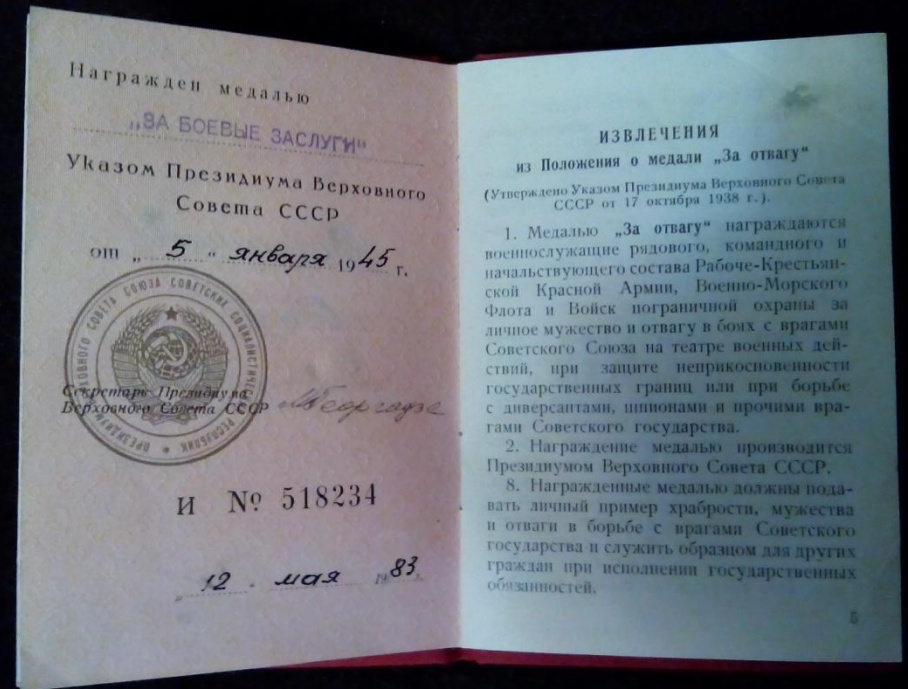 Награжден медалью
„ЗА БОЕВЫЕ ЗАСЛУГИ"
Указом Президиума Верховного
Совета СССР
от „ 5 " января 1945 г.
ПРЕЗИДИУМ ВЕРХОВНОГО СОВЕТА СОЮЗА СОВЕТСКИХ СОЦИАЛИСТИЧЕСКИХ РЕСПУБЛИК
Секретарь Президиума
Верховного Совета СССР МГеоргадзе
И № 518234
12 мая 1983 г.
ИЗВЛЕЧЕНИЯ
из Положения о медали „За отвагу"
(Утверждено Указом Президиума Верховного Совета
СССР от 17 октября 1938 г.).
1. Медалью „За отвагу" награждаются
военнослужащие рядового, командного и
начальствующего состава Рабоче-Крестьян-
ской Красной Армии, Военно-Морского
Флота и Войск пограничной охраны за
личное мужество и отвагу в боях с врагами
Советского Союза на театре военных дей-
ствий, при защите неприкосновенности
государственных границ или при борьбе
с диверсантами, шпионами и прочими вра-
гами Советского государства.
2. Награждение медалью производится
Президиумом Верховного Совета СССР.
8. Награжденные медалью должны пода-
вать личный пример храбрости, мужества
и отваги в борьбе с врагами Советского
государства и служить образцом для других
граждан при исполнении государственных
обязанностей.
5